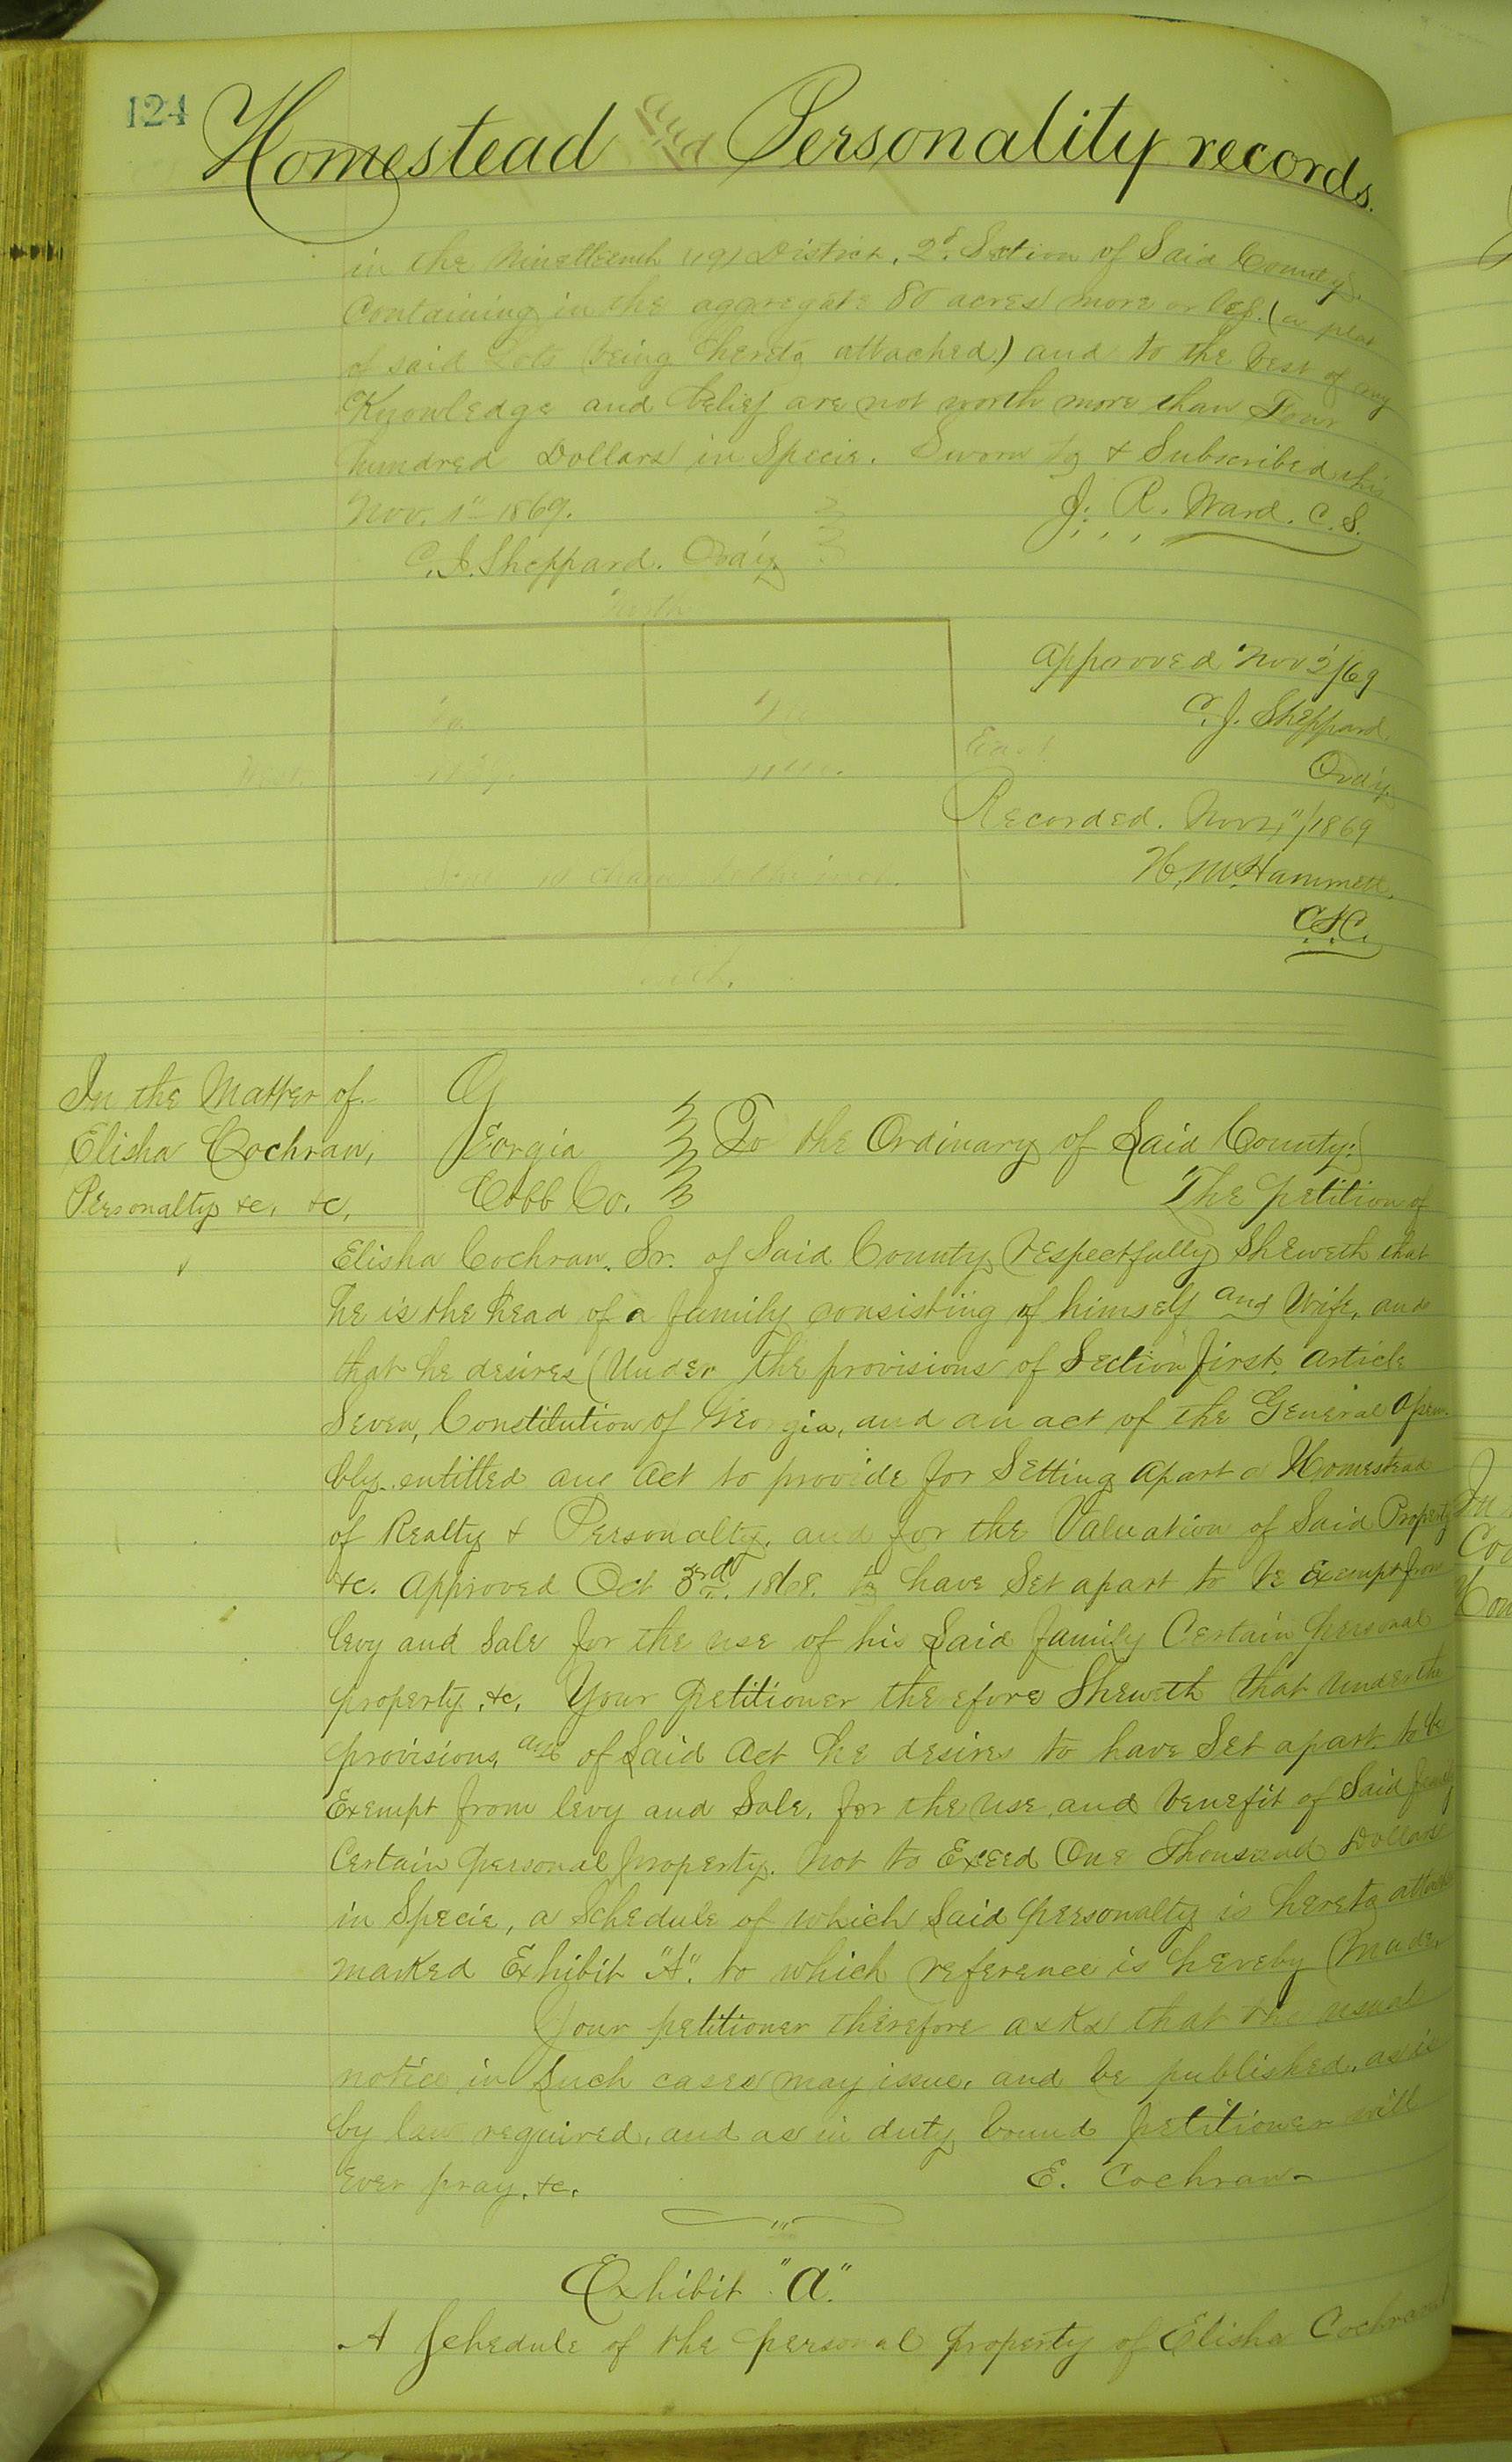 124
Homestead and Personality records.
in the Nineteenth (19) District, 2d. Section of Said County.
Containing in the aggregate 80 acres more or less. (a plat
of said Lots being hereto attached.) and to the best of my
Knowledge and belief are not worth more than Four
hundred Dollars in Specie. Sworn to & Subscribed this
Nov. 1" 1869. J. R. Ward. C. S.
C. J. Sheppard. Ord'y
North
Approved Nov 2/69
C. J. Sheppard.
West East
Ord'y
Recorded. Nov /1869
H. M. Hammett.
C.S.C.
In the Matter of
Elisha Cochran,
Personalty &c. &c.
Georgia To the Ordinary of Said County:
Cobb Co. The petition of
Elisha Cochran. Sr. of Said County respectfully Sheweth that
he is the head of a family consisting of himself and Wife, and
that he desires (Under the provisions of Section first, Article
Seven, Constitution of Georgia, and an act of the General Assem-
bly. entitled an Act to provide for Setting Apart a Homestead
of Realty & Personalty, and for the Valuation of Said Property
&c. Approved Oct 3rd. 1868. to have Set apart to be Exempt from
levy and Sale for the use of his Said family Certain personal
property, &c. Your petitioner therefore Sheweth that under the
provisions of Said Act he desires to have Set apart to be
Exempt from levy and Sale, for the use and benefit of Said family
Certain personal property. Not to Exceed One Thousand Dollars
in Specie, a Schedule of which Said personalty is hereto attached
marked Exhibit "A". to which reference is hereby made.
Your petitioner therefore asks that the usual
notice in Such cases may issue, and be published, as is
by law required, and as in duty bound petitioner will
ever pray, &c. E. Cochran
Exhibit "a".
A Schedule of the personal property of Elisha Cochran